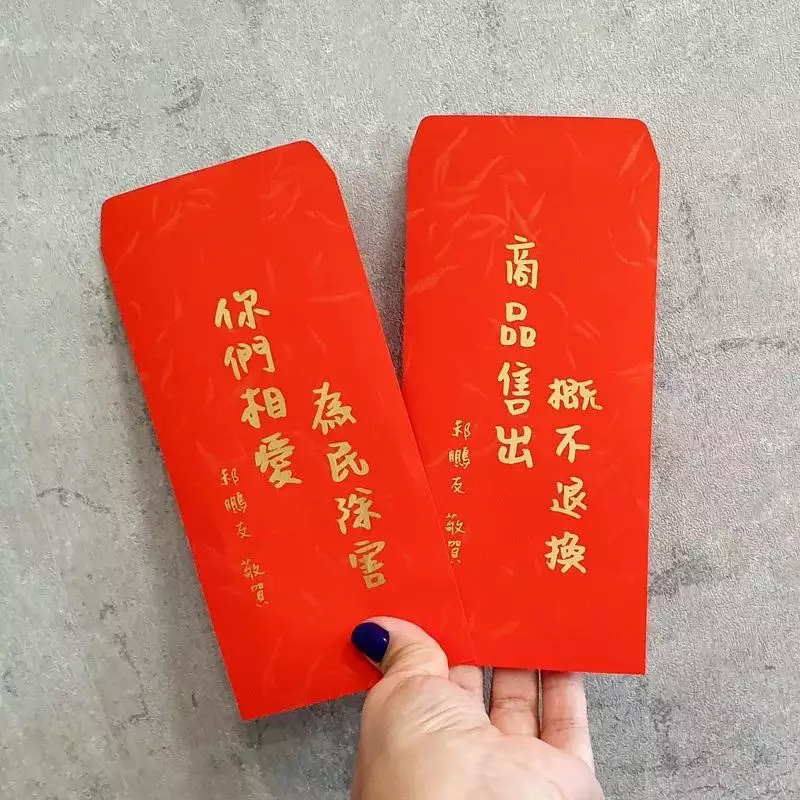 你們相愛
為民除害
郝鵬友 敬賀
商品售出
概不退換
郝鵬友 敬賀